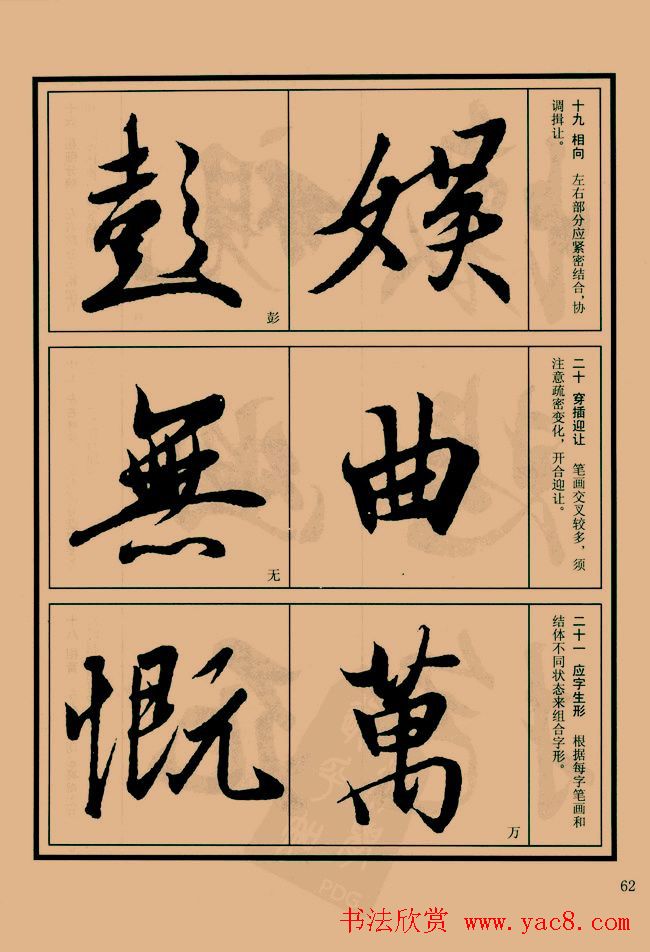 十九 相向 左右部分应紧密结合，协
调揖让。
娱
彭
彭
二十 穿插迎让 笔画交叉较多，须
注意疏密变化，开合迎让。
曲
無
无
二十一 应字生形 根据每字笔画和
结体不同状态来组合字形。
萬
万
慨
62
书法欣赏 www.yac8.com
PDG